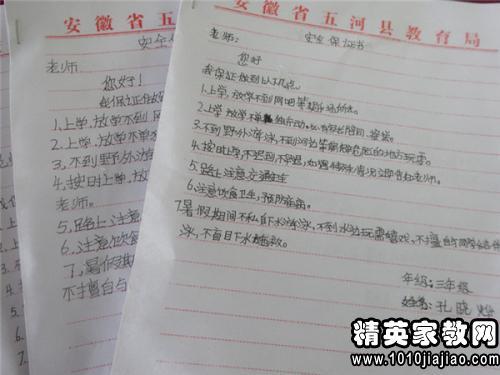 安徽省五河县教育局
安全保证书
老师:
您好
我保证做到以下几点。
1.上学,放学不到网吧等娱乐场所去。
2.上学,放学不单独行动。
3.不到野外游泳,不到河边等有危险的地方玩耍。
4.按时上学,不迟到不早退,如遇特殊情况立即告知老师。
5.路上注意交通安全
6.注意饮食卫生,预防疾病。
7.暑假期间不私自下水游泳,不到水边玩耍嬉戏,不擅自与同学结伴游
泳,不盲目下水施救。
年级:三年级
姓名:孔晓
安徽省五
安全保
老师
您好!
我保证做
1.上学,放学不到网
2.上学,放学不单
3.不到野外游泳
4.按时上学,放
老师。
5.路上注意
6.注意饮食
7.暑假期
不擅自与
精英家教网
www.1010jiajiao.com